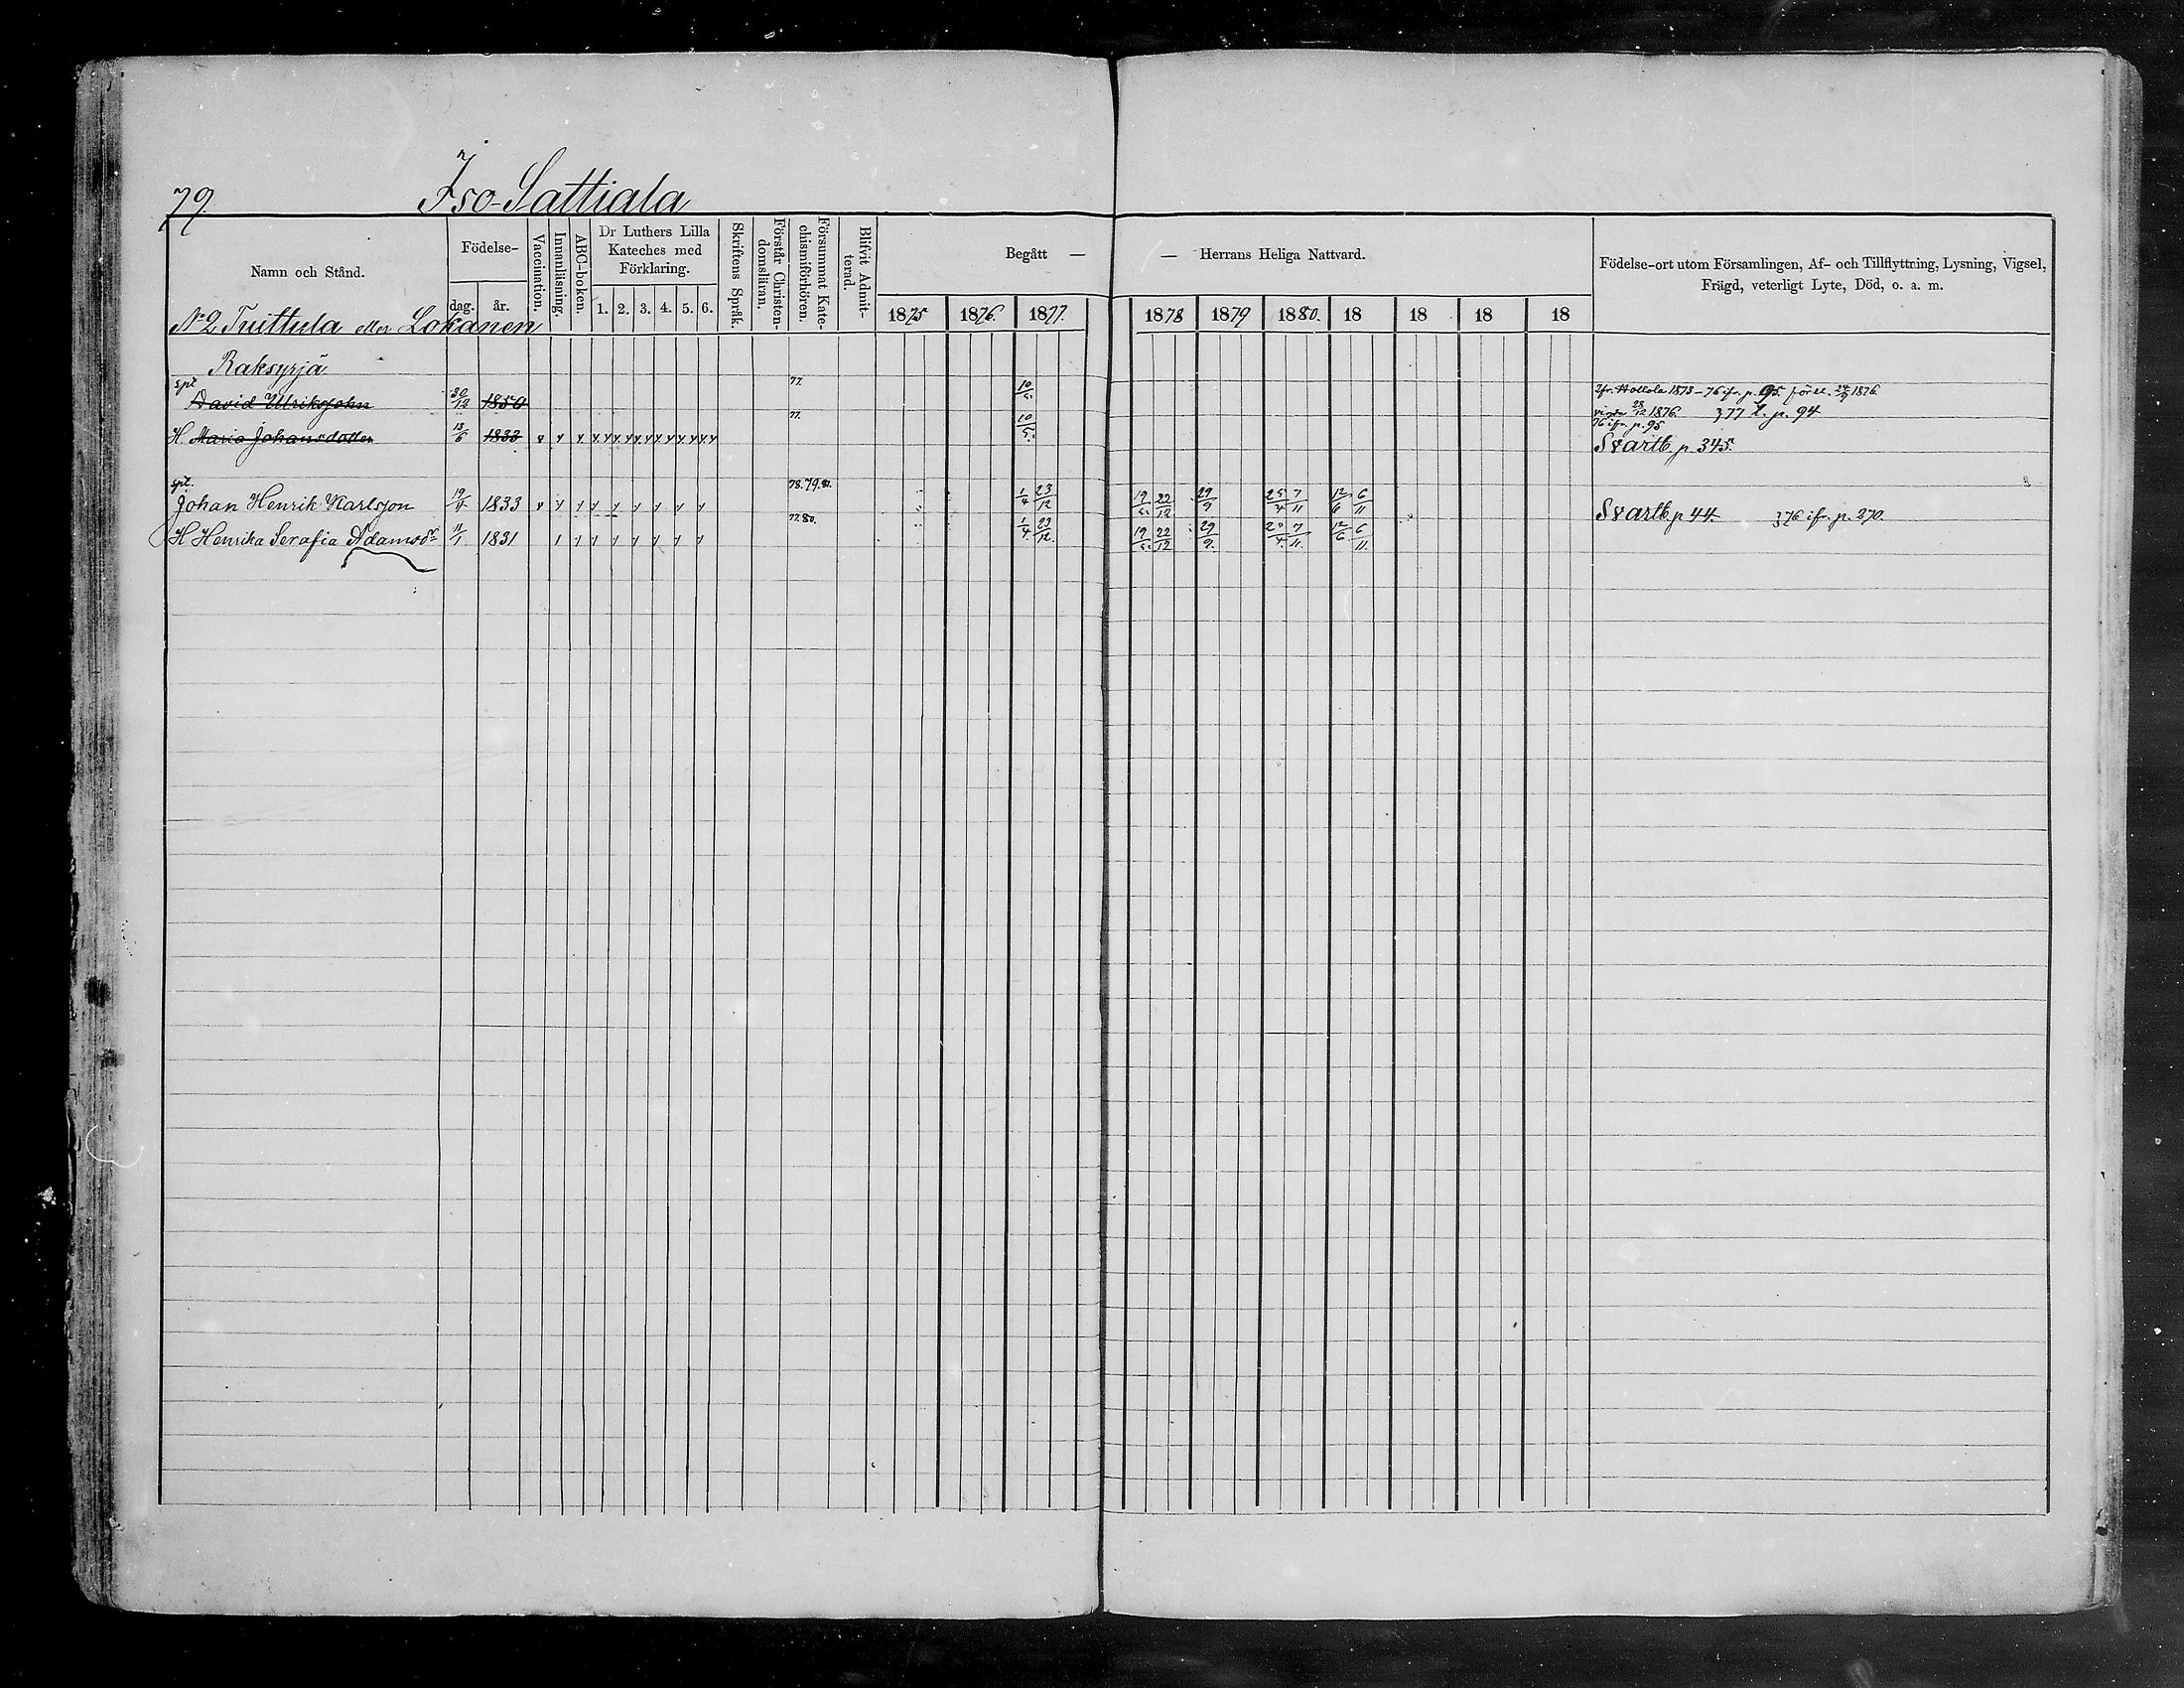 79.
Iso-Sattiala
Namn och Stånd.
Födelse-
dag.
år.
Vaccination.
Innanläsning.
ABC-boken.
Dr Luthers Lilla
Kateches med
Förklaring.
1. 2. 3. 4. 5. 6.
Skriftens Språk.
Förstår Christen-
domsläran.
Försummat Kate-
chismiförhören.
Blifvit Admit-
terad.
Begått —
— Herrans Heliga Nattvard.
1875 1876. 1877. 1878 1879 1880. 18 18 18 18
Födelse-ort utom Församlingen, Af- och Tillflyttning, Lysning, Vigsel,
Frägd, veterligt Lyte, Död, o. a. m.
No 2 Tuittula eller Lokanen
Raksyrjä
spl
David Ulriksson 30/12 1850 77. 10/5. Ifr. Hollola 1873–76 ifr. p. 95. 1876.
vigde 28/12 1876. 377 t. p. 94
H. Maria Johansdotter 13/6 1833 v 77. 10/5. 76 ifr. p. 95
Svartb. p. 345.
spl.
Johan Henrik Karlsson 19/4 1833 v 78. 79. 81. 1/4 23/12 19/5. 22/12 29/9 25/4 7/11 12/6 6/11 Svartb. p 44. 376 ifr. p. 270.
H Henrika Serafia Adamsdr 11/1 1831 77. 80. 1/4. 23/12. 19/5. 22/12 29/9. 7/11. 12/6 6/11.